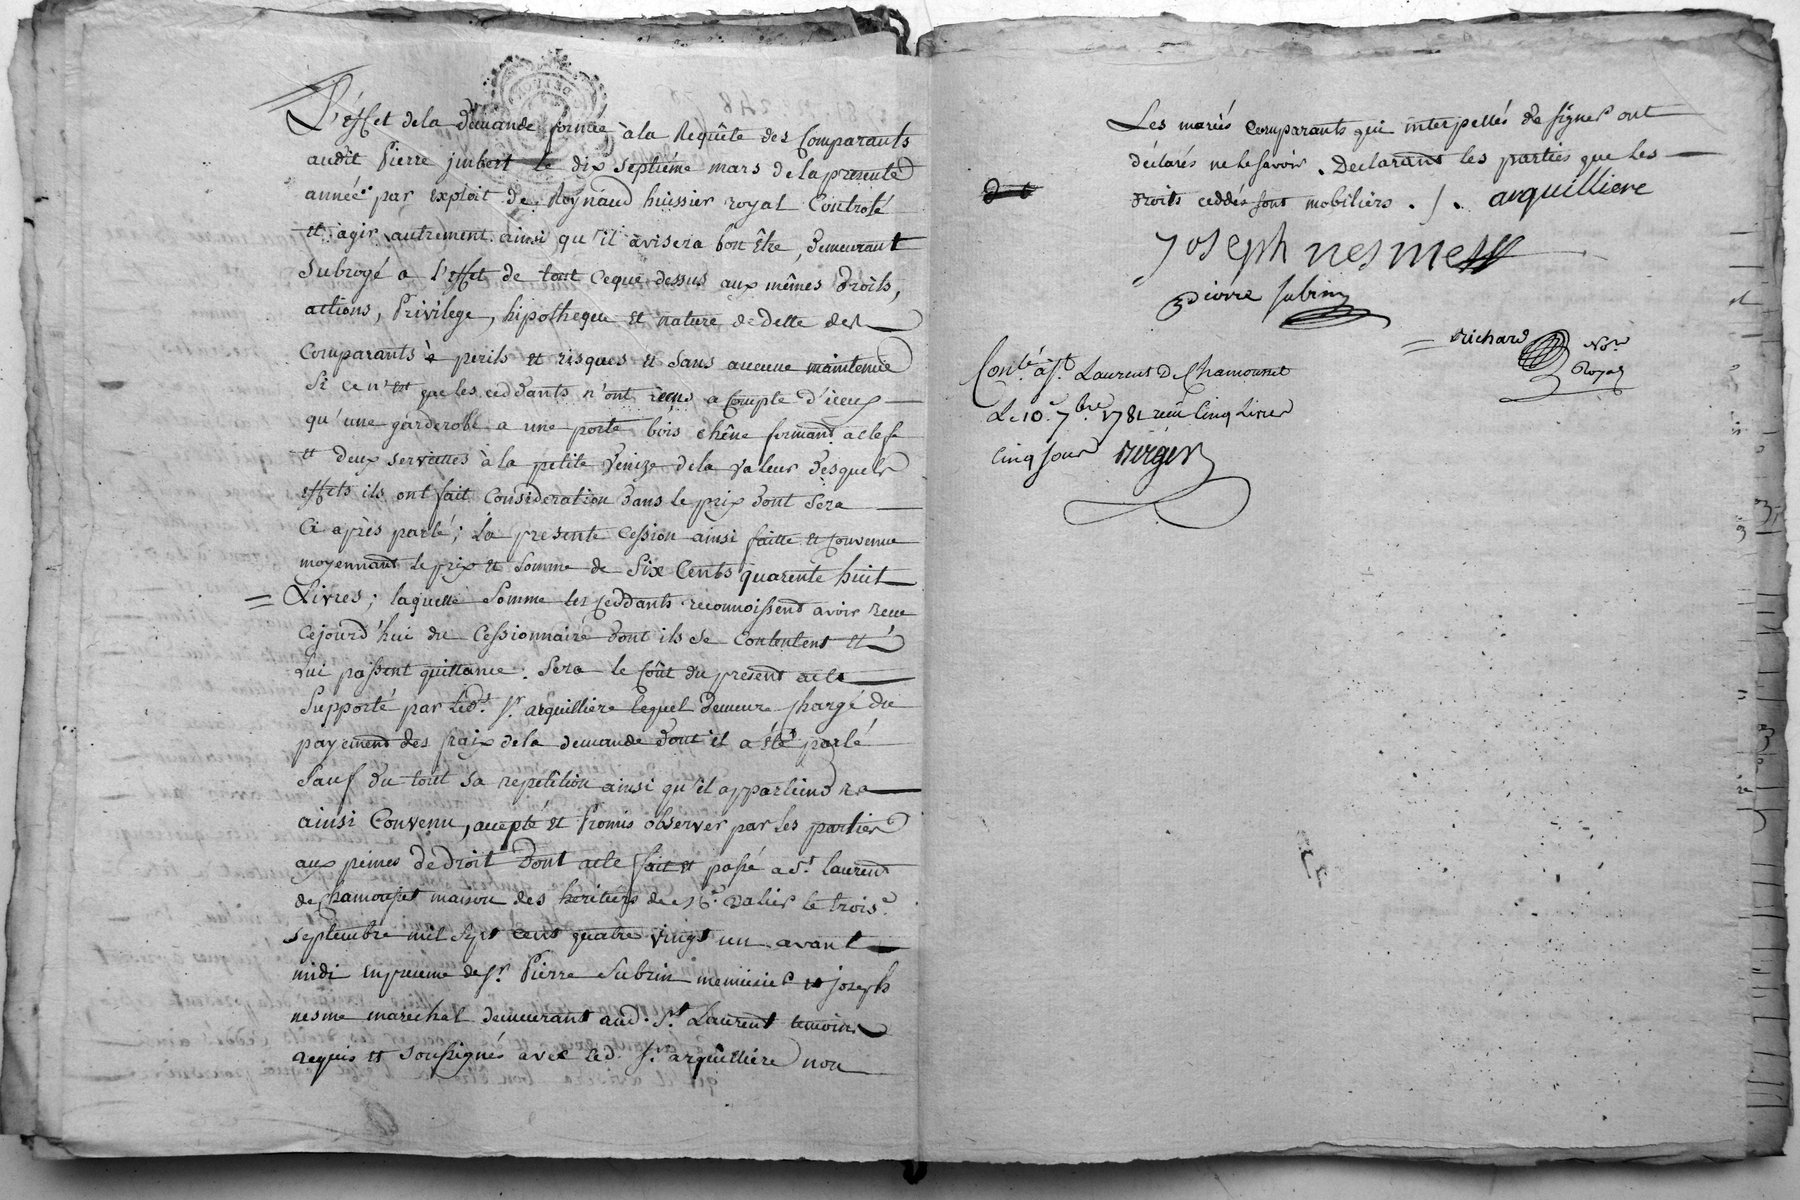 L'effet de la demande formée à la Requête des Comparants
audit Pierre jmbert le dix septiéme mars de la presente
année par exploit de Roynaud huissier royal Controlé
et agir autrement ainsi qu'il avisera bon Être, demeurant
Subrogé a l'effet de tout ceque dessus aux mêmes droits,
actions, Privilege, hipotheque et nature de dette des
Comparants à perils et risques et sans aucune maintenüe
Si ce n'est que les ceddants n'ont reçus a Compte d'iceux
qu'une garderobe a une porte bois chêne fermant a clefe
et deux serviettes à la petite Venize de la valeur desquels
effets ils ont fait Consideration dans le prix dont sera
Ci après parlé; La presente Cession ainsi faitte et Convenue
moyennant le prix et somme de Six Cents quarente huit
Livres; laquelle Somme les Ceddants reconnoissent avoir reçue
cejourd'hui du Cessionnaire dont ils se contentent et
lui passent quittance. Sera le Coût du present acte
Supporté par led.t S.r arquilliere lequel demeure Chargé du
payement des fraix de la demande dont il a été parlé
Sauf du tout sa repetition ainsi qu'il appartiendra
ainsi Convenu, accepté et Promis observer par les parties
aux peines de droit Dont acte fait et passé a S.t laurent
de Chamousset maison des heritiers de valier le trois.e
Septembre mil Sept Cent quatre vingt un avant
midi en presence de S.r Pierre Subrin menuisier et joseph
nesme marechal demeurant aud. S.t Laurent temoins
requis et soussignés avec led. S.r arquilliere non
Les mariés comparants qui interpellés de signer ont
déclarés ne le savoir. Declarant les parties que les
droits ceddés sont mobiliers ./. arquilliere
joseph nesme
pierre subrin
richard No.re
Royal
Con.lé à S.t Laurent De Chamousset
Le 10.e 7.bre 1781 reçu Cinq Livres
cinq sous